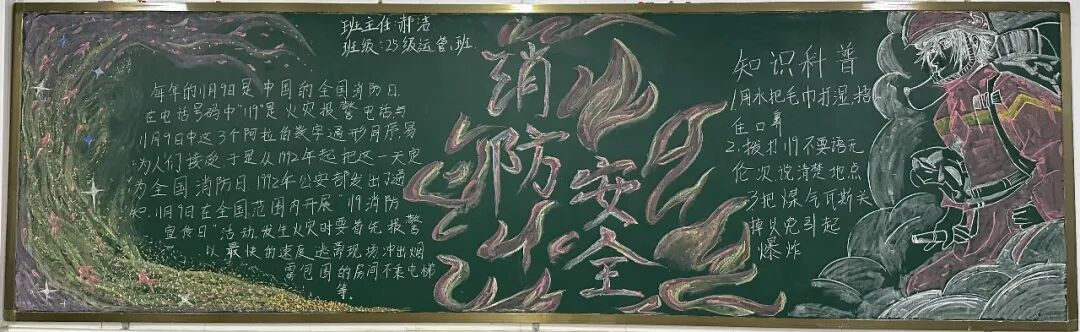 班主任:郝洁
班级:25级运管班
每年的11月9日是中国的全国消防日
在电话号码中"119"是火灾报警电话与
11月9日中这3个阿拉伯数字通形同序.易
为人们接受于是从1992年起把这一天定
为全国消防日.1992年公安部发出了通
知.11月9日在全国范围内开展"119消防
宣传日"活动.发生火灾时要首先报警
以最快的速度逃离现场冲出烟
雾包围的房间不乘电梯
等.
消防安全
知识科普
1.用水把毛巾打湿,捂
住口鼻
2.拨打119不要语无
伦次说清楚地点
3把煤气瓦斯关
掉以免引起
爆炸